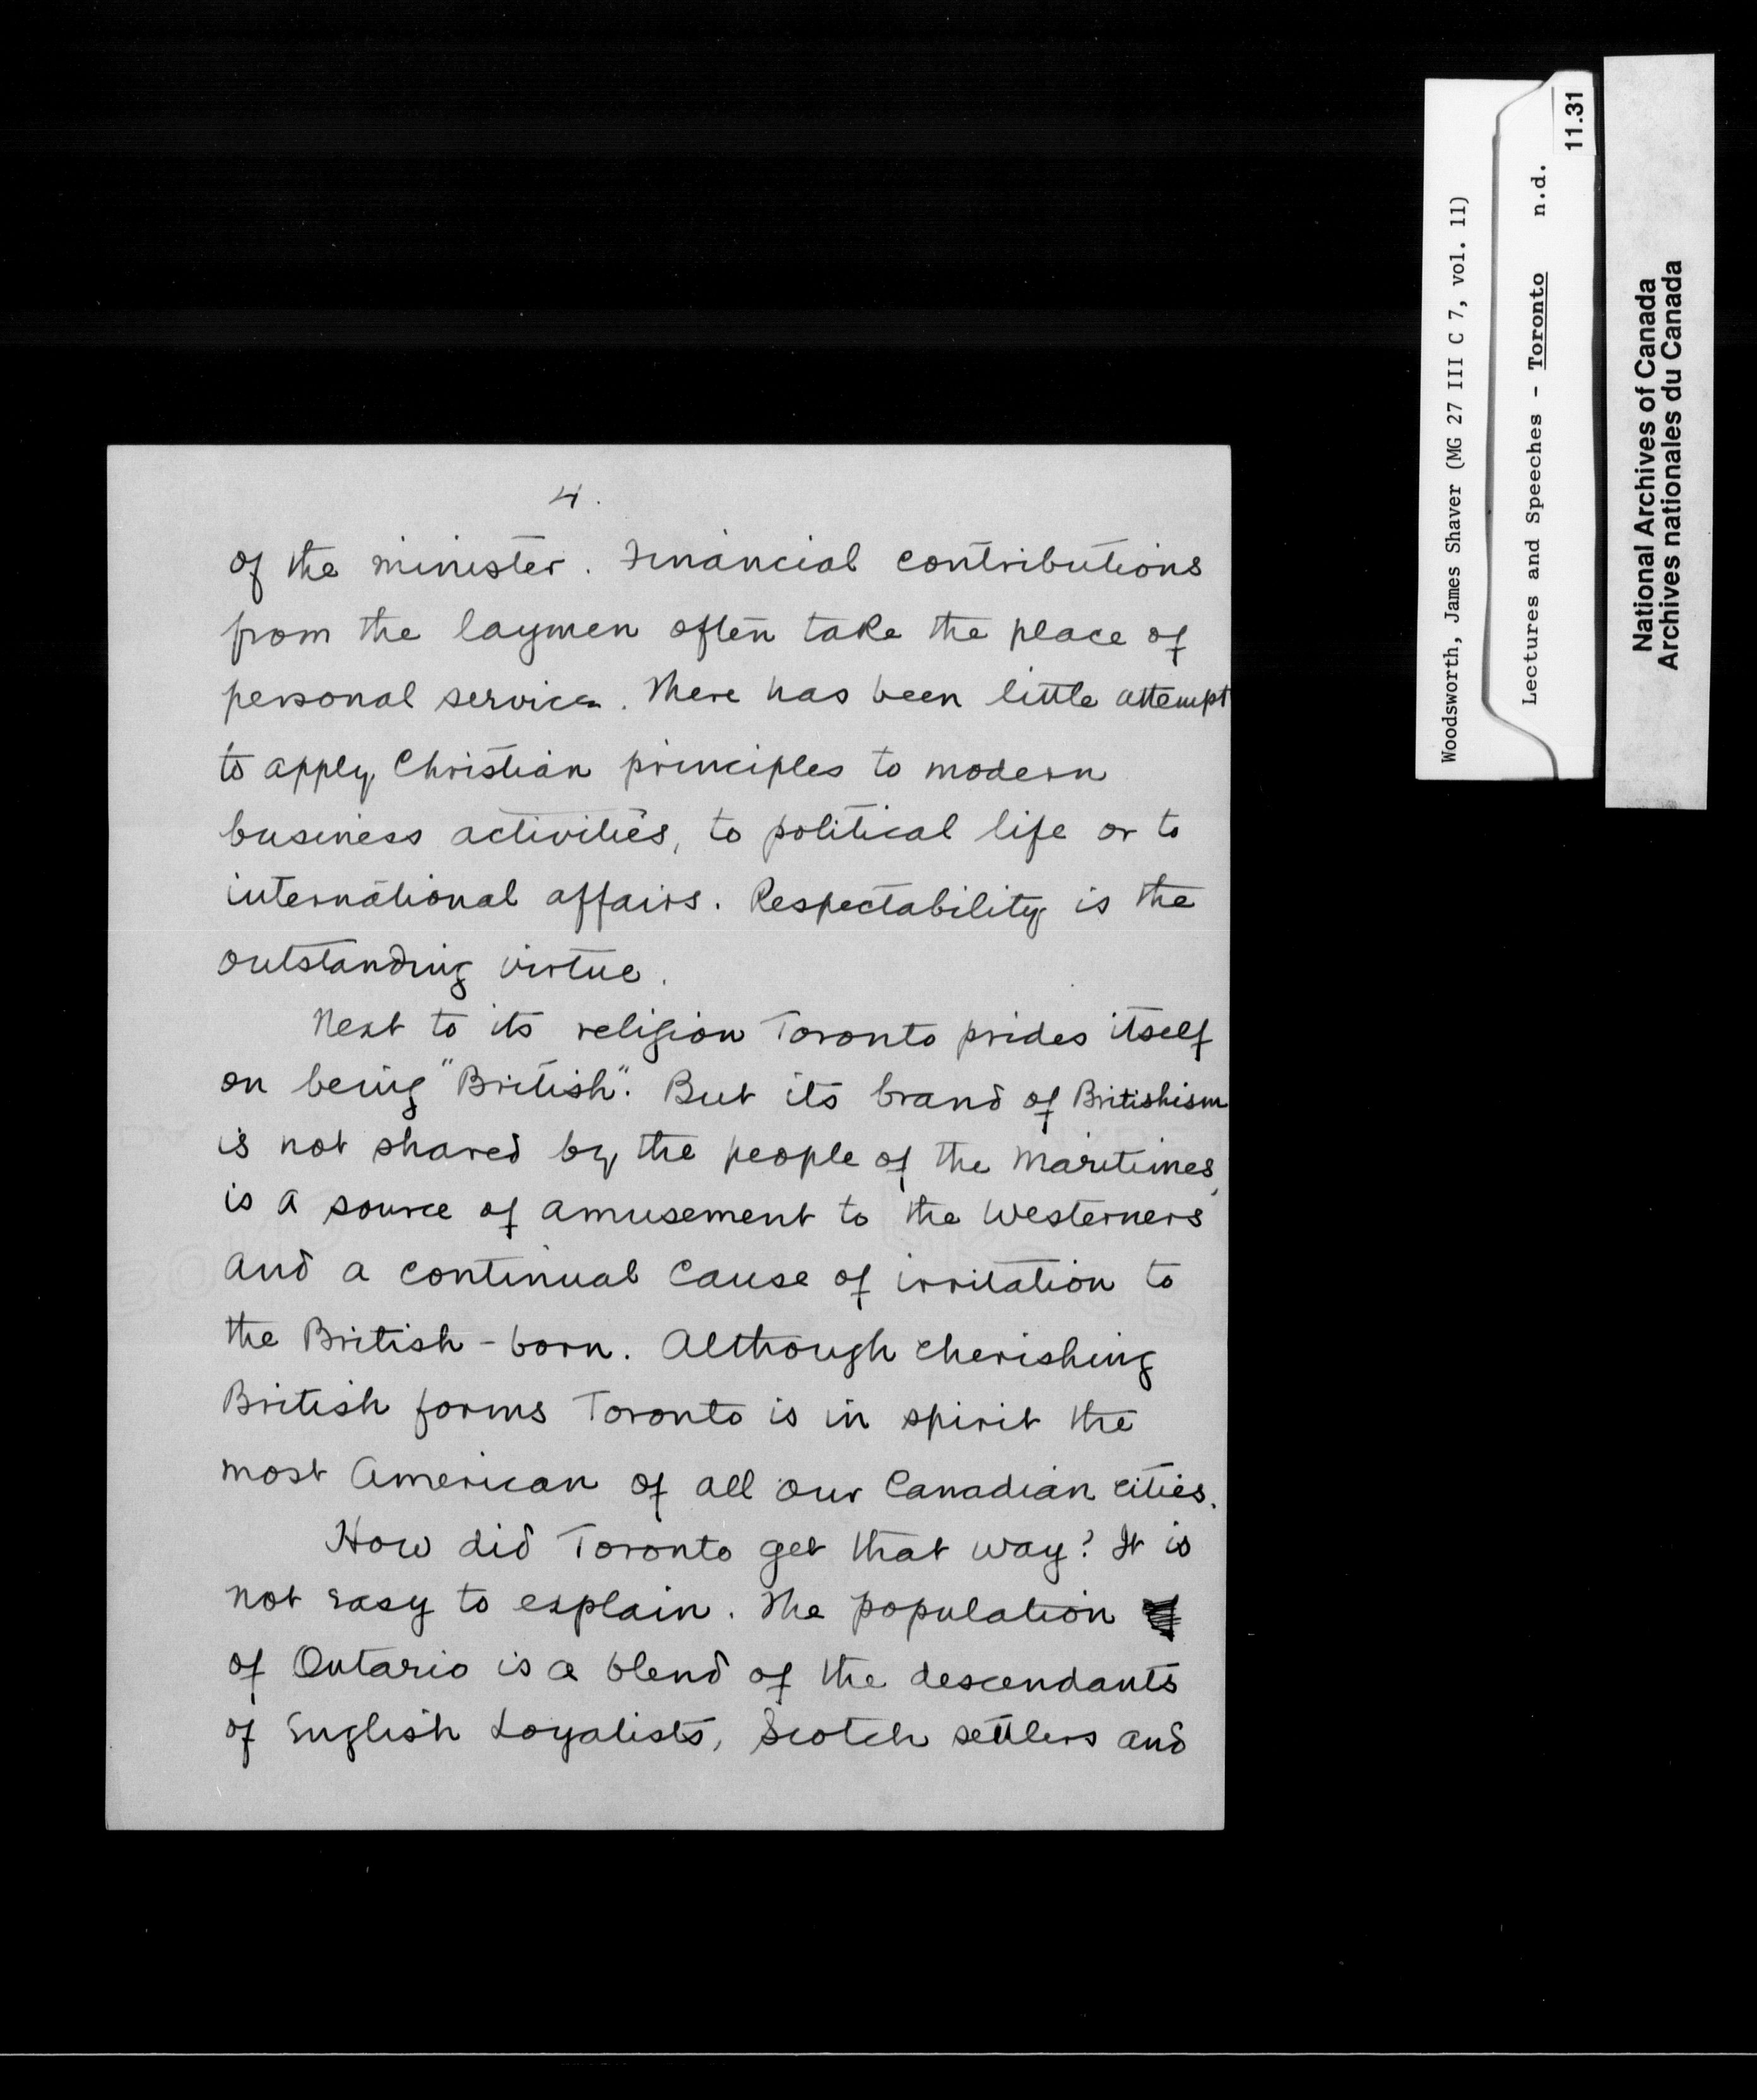 4.
of the minister. Financial contributions
from the laymen often take the place of
personal service. There has been little attempt
to apply Christian principles to modern
business activities, to political life or to
international affairs. Respectability is the
outstanding virtue.
Next to its religion Toronto prides itself
on being "British". But its brand of Britishism
is not shared by the people of the Maritimes,
is a source of amusement to the Westerners
and a continual cause of irritation to
the British-born. Although cherishing
British forms Toronto is in spirit the
most American of all our Canadian cities.
How did Toronto get that way? It is
not easy to explain. The population
of Ontario is a blend of the descendants
of English Loyalists, Scotch settlers and
Woodsworth, James Shaver (MG 27 III C 7, vol. 11)
Lectures and Speeches - Toronto n.d.
11.31
National Archives of Canada
Archives nationales du Canada